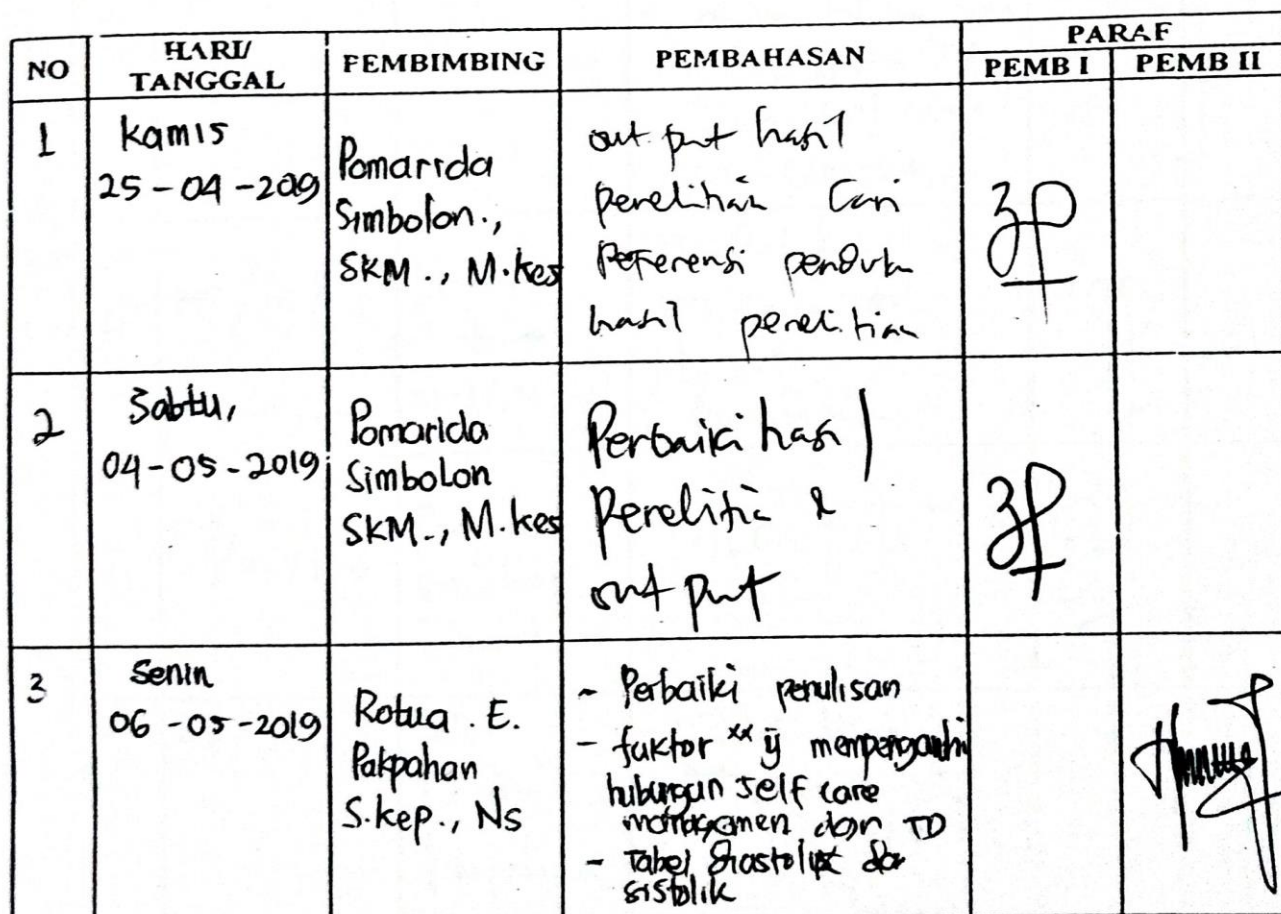 NO
HARI/
TANGGAL
PEMBIMBING
PEMBAHASAN
PARAF
PEMB I
PEMB II
1
Kamis
25-04-2019
Pomarida
Simbolon.,
SKM., M.kes
out put hasil
penelitian Cari
Referensi
hasil penelitian
2
Sabtu,
04-05-2019
Pomarida
Simbolon
SKM., M.kes
Perbaiki hasil
Penelitia &
out put
3
Senin
06-05-2019
Rotua. E.
Pakpahan
S.kep., Ns
- Perbaiki penulisan
- faktor xx yg mempengaruhi
hubungan self care
managemen dan TD
- Tabel diastolik dan
sistolik